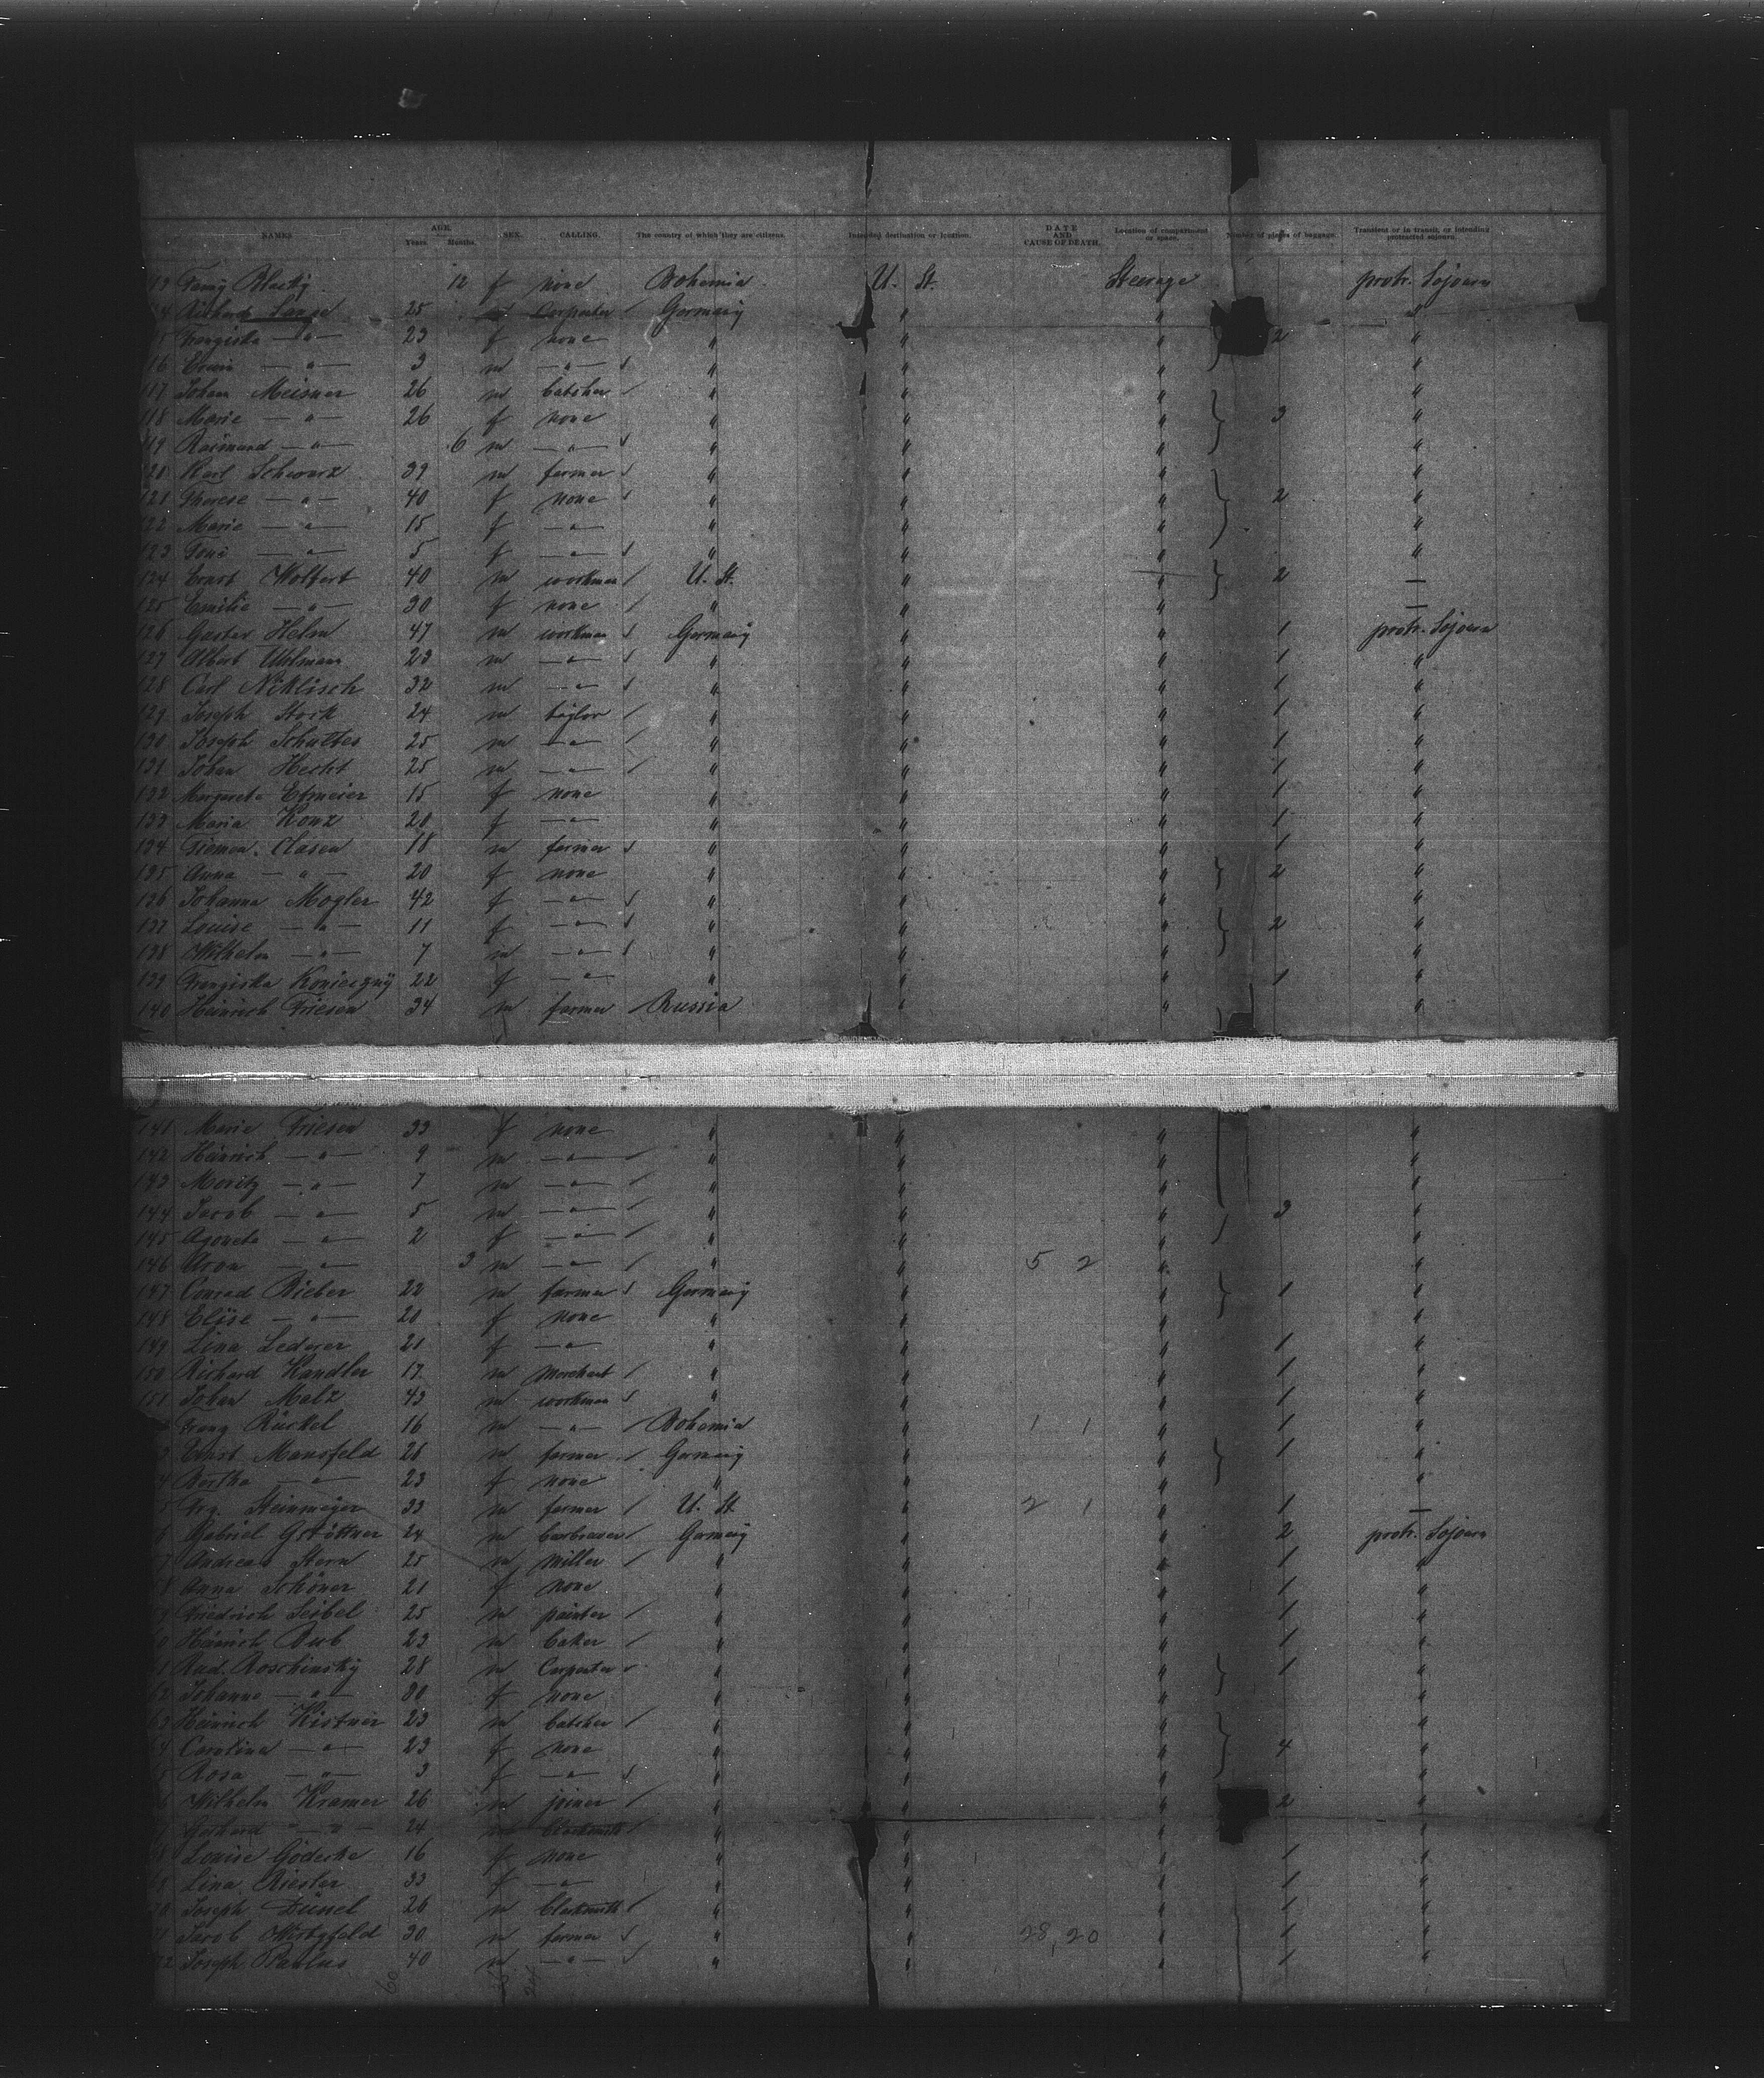 NAMES AGE. Years. Months. SEX. CALLING. The country of which they are citizens. Intended destination or location. DATE AND CAUSE OF DEATH. Location of compartment or space. Number of pieces of baggage. Transient or in transit, or intending protracted sojourn.
12 f none Bohemia U. St. Steerage protr. Sojourn
Richard 25 m Carpenter Germany " " "
Franziska —"— 23 f none " " " 2 "
116 Erwin —"— 3 m —"— " " " "
117 Johann Meisner 26 m butcher " " " "
118 Marie —"— 26 f none " " " 3 "
119 Raimund —"— 6 m —"— " " " "
120 Karl Schwarz 39 m farmer " " " "
121 Therese —"— 40 f none " " " 2 "
122 Marie —"— 15 f —"— " " " "
123 Toni —"— 5 f —"— " " " "
124 Ernst Wolfert 40 m workman U. St. " " 2 —
125 Emilie —"— 30 f none " " " —
126 Gustav Helm 47 m workman Germany " " 1 protr. Sojourn
127 Albert Uhlmann 23 m —"— " " " 1 "
128 Carl Niklisch 32 m —"— " " " 1 "
129 Joseph Stock 24 m taylor " " " 1 "
130 Joseph Schultes 25 m —"— " " " 1 "
131 Johan Hecht 25 m —"— " " " 1 "
132 Margareta Etmeier 15 f none " " " 1 "
133 Maria Konz 20 f —"— " " " 1 "
134 Clasen 18 m farmer " " " 1 "
135 Anna —"— 20 f none " " " 2 "
136 Johanna Mogler 42 f —"— " " " "
137 Louise —"— 11 f —"— " " " 2 "
138 Wilhelm —"— 7 m —"— " " " "
139 Franziska Konieczny 22 f —"— " " " 1 "
140 Heinrich Friesen 34 m farmer Russia " " "
141 Marie Friesen 33 f none " " " "
142 Heinrich —"— 9 m —"— " " " "
143 Moritz —"— 7 m —"— " " " "
144 Jacob —"— 5 m —"— " " " 3 "
145 Aganeta —"— 2 f —"— " " " "
146 Aron —"— 3 m —"— " " 5 2 " "
147 Conrad Bieber 22 m farmer Germany " " 1 "
148 Elise —"— 20 f none " " " "
149 Lina Lederer 21 f —"— " " " 1 "
150 Richard Kandler 17 m Merchant " " " 1 "
151 Johan Malz 43 m workman " " " 1 "
Franz Rückel 16 m —"— Bohemia " 1 1 " 1 "
Ernst Mansfeld 26 m farmer Germany " " 1 "
Bertha —"— 23 f none " " " "
Steinmeyer 33 m farmer U. St. " 2 1 " 1 —
Gabriel Gstöttner 24 m Germany " " 2 protr. Sojourn
Andreas Stern 25 m miller " " " 1 "
Anna Schöner 21 f none " " " 1 "
Friedrich Seibel 25 m painter " " " 1 "
Heinrich Bub 23 m baker " " " 1 "
Rud. Roschinsky 28 m Carpenter " " " 1 "
Johanne —"— 30 f none " " " "
Heinrich Kistner 23 m butcher " " " "
Carolina —"— 23 f none " " " 4 "
Rosa —"— 3 f —"— " " " "
Wilhelm Kramer 26 m joiner " " " 2 "
Gerhard —"— 24 m blacksmith " " " "
Louise Gödecke 16 f none " " " 1 "
Lina Riester 33 f —"— " " " 1 "
Joseph 26 m blacksmith " " " 1 "
Jacob 30 m farmer " " 28,20 " 1 "
Joseph Paulus 40 m —"— " " " 1 "